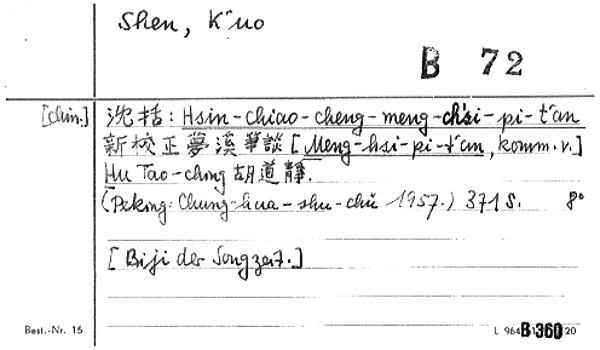 Shen, K'uo
B 72
[chin.] 沈括: Hsin-chiao-cheng-meng-ch'si-pi-t'an
新校正夢溪筆談 [Meng-hsi-pi-t'an, komm. v.]
Hu Tao-ching 胡道靜.
(Peking: Chung-hua-shu-chü 1957.) 371 S. 8°
[Biji der Songzeit.]
Best.-Nr. 15
L 964 B 360 20